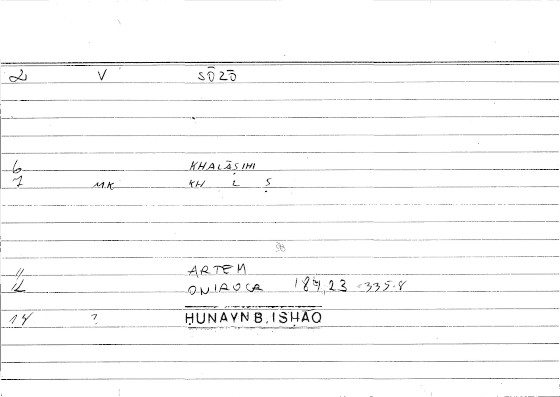 2 V SŌZŌ
6 KHALĀṢIHI
7 MK KH L Ṣ
11 ARTEM
12 ONIROCR 184,23 335.8
14 ? ḤUNAYN B. ISḤĀQ